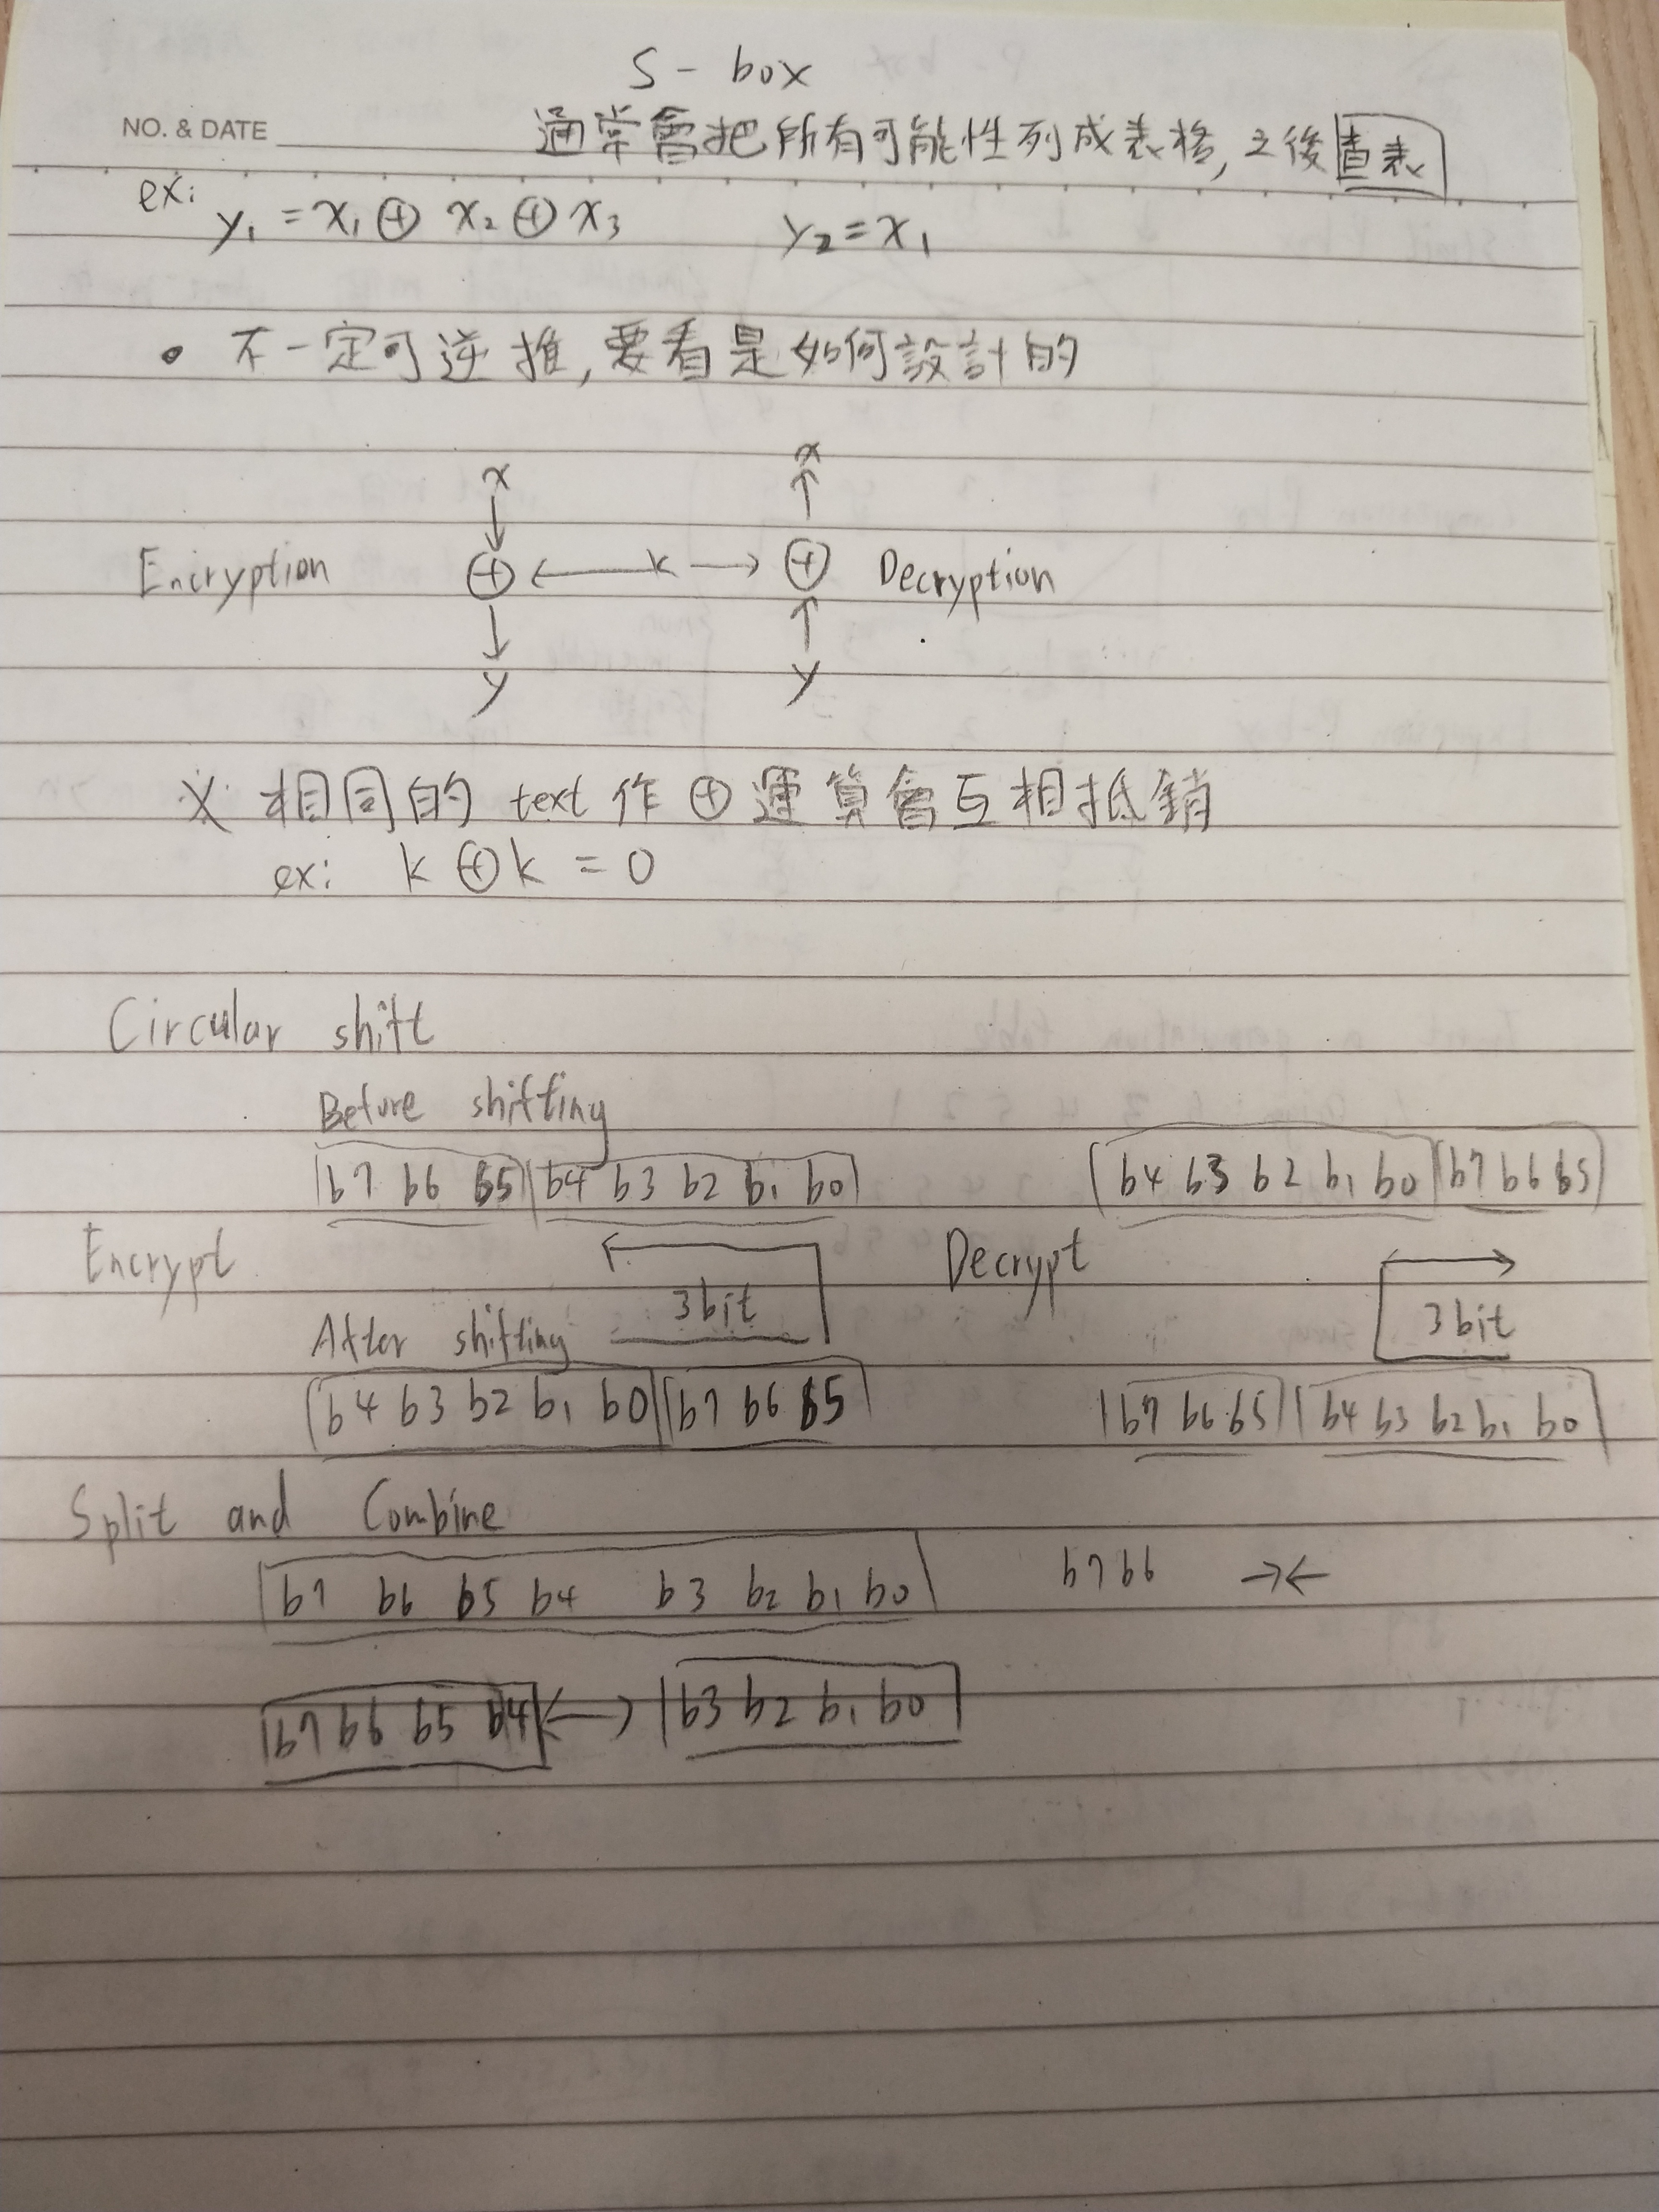 S - box
NO. & DATE 通常會把所有可能性列成表格,之後查表
ex: y₁ = x₁ ⊕ x₂ ⊕ x₃ y₂ = x₁
• 不一定可逆推,要看是如何設計的
x x
Encryption ⊕ ← k → ⊕ Decryption
y y
※ 相同的 text 作 ⊕ 運算會互相抵銷
ex: k ⊕ k = 0
Circular shift
Before shifting
b7 b6 b5 b4 b3 b2 b1 b0 b4 b3 b2 b1 b0 b7 b6 b5
Encrypt Decrypt
3bit 3bit
After shifting
b4 b3 b2 b1 b0 b7 b6 b5 b7 b6 b5 b4 b3 b2 b1 b0
Split and Combine
b7 b6 b5 b4 b3 b2 b1 b0 b7 b6 →←
b7 b6 b5 b4 ←→ b3 b2 b1 b0